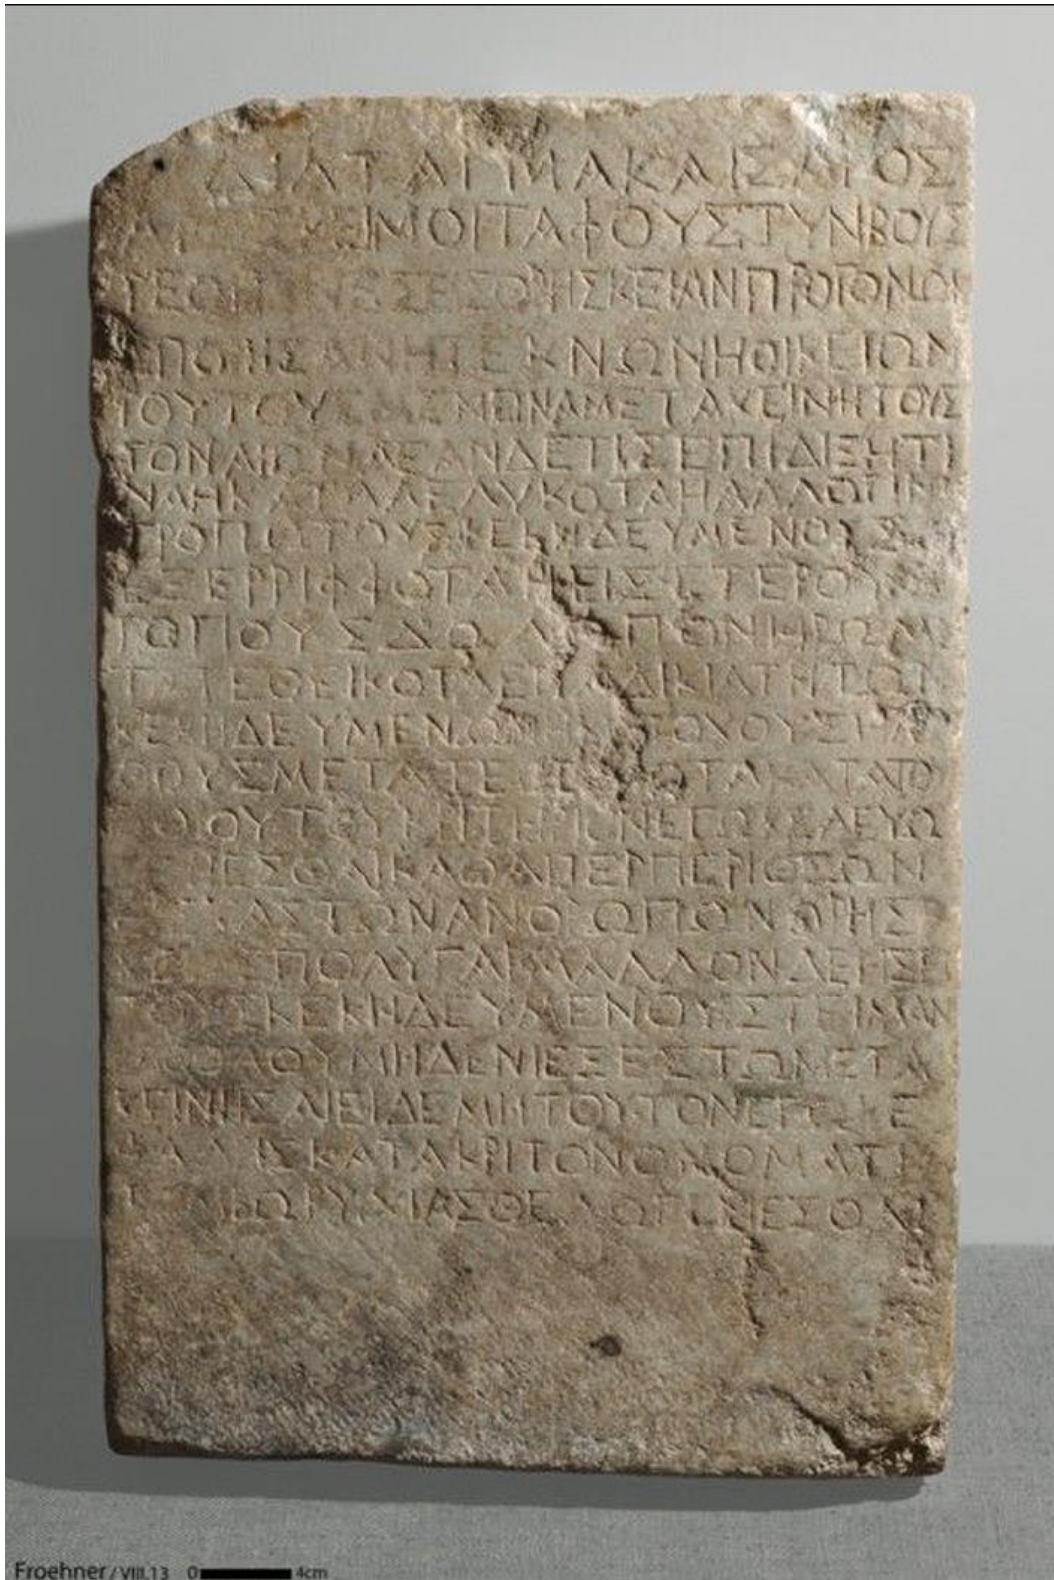 ΔΙΑΤΑΓΜΑΚΑΙΣΑΡΟΣ
ΑΡΕΣΚΕΙΜΟΙΤΑΦΟΥΣΤΥΝΒΟΥΣ
ΤΕΟΙΤΙΝΕΣΕΙΣΘΡΗΣΚΕΙΑΝΠΡΟΓΟΝΩΝ
ΕΠΟΙΗΣΑΝΗΤΕΚΝΩΝΗΟΙΚΕΙΩΝ
ΤΟΥΤΟΥΣΜΕΝΕΙΝΑΜΕΤΑΚΕΙΝΗΤΟΥΣ
ΤΟΝΑΙΩΝΑΕΑΝΔΕΤΙΣΕΠΙΔΙΞΗΤΙ
ΝΑΗΚΑΤΑΛΕΛΥΚΟΤΑΗΑΛΛΩΤΙΝΙ
ΤΡΟΠΩΤΟΥΣΚΕΚΗΔΕΥΜΕΝΟΥΣ
ΕΞΕΡΡΙΦΦΟΤΑΗΕΙΣΕΤΕΡΟΥΣ
ΤΩΠΟΥΣΔΩΛΩΠΟΝΗΡΩΜΕ
ΤΑΤΕΘΕΙΚΟΤΑΕΠΑΔΙΚΙΑΤΗΤΩΝ
ΚΕΚΗΔΕΥΜΕΝΩΝΗΚΑΤΟΧΟΥΣΗΛΙ
ΘΟΥΣΜΕΤΑΤΕΘΕΙΚΟΤΑΚΑΤΑΤΟΙ
ΟΥΤΟΥΚΡΙΤΗΡΙΟΝΕΓΩΚΕΛΕΥΩ
ΓΕΝΕΣΘΑΙΚΑΘΑΠΕΡΠΕΡΙΘΕΩΝ
ΕΙΣΤΑΣΤΩΝΑΝΘΡΩΠΩΝΘΡΗΣ
ΚΙΑΣΠΟΛΥΓΑΡΜΑΛΛΟΝΔΕΗΣΕΙ
ΤΟΥΣΚΕΚΗΔΕΥΜΕΝΟΥΣΤΕΙΜΑΝ
ΚΑΘΟΛΟΥΜΗΔΕΝΙΕΞΕΣΤΩΜΕΤΑ
ΚΕΙΝΗΣΑΙΕΙΔΕΜΗΤΟΥΤΟΝΕΓΩΚΕ
ΦΑΛΗΣΚΑΤΑΚΡΙΤΟΝΟΝΟΜΑΤΙ
ΤΥΜΒΩΡΥΧΙΑΣΘΕΛΩΓΕΝΕΣΘΑΙ